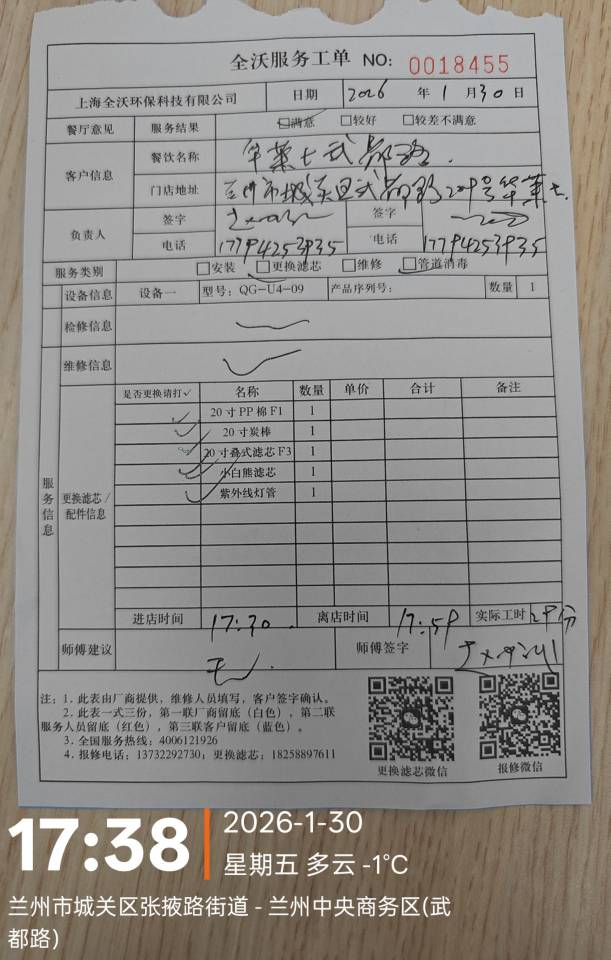 全沃服务工单 NO: 0018455
上海全沃环保科技有限公司 日期 2026 年 1 月 30 日
餐厅意见 服务结果 ☑满意 □较好 □较差不满意
客户信息 餐饮名称 华莱士武都路.
门店地址 兰州市城关区武都路209号华莱士.
负责人 签字 签字
电话 17794253935 电话 17794253935
服务类别 □安装 ☑更换滤芯 □维修 ☑管道消毒
设备信息 设备一 型号: QG-U4-09 产品序列号: 数量 1
检修信息
维修信息
服务信息 更换滤芯/配件信息
是否更换请打✓ 名称 数量 单价 合计 备注
✓ 20寸PP棉F1 1
✓ 20寸炭棒 1
✓ 20寸叠式滤芯F3 1
✓ 小白熊滤芯 1
✓ 紫外线灯管 1
进店时间 17:30. 离店时间 17:59 实际工时 29分
师傅建议 无. 师傅签字
注: 1. 此表由厂商提供, 维修人员填写, 客户签字确认。
2. 此表一式三份, 第一联厂商留底 (白色), 第二联
服务人员留底 (红色), 第三联客户留底 (蓝色)。
3. 全国服务热线: 4006121926
4. 报修电话: 13732292730; 更换滤芯: 18258897611
更换滤芯微信 报修微信
17:38
2026-1-30
星期五 多云 -1℃
兰州市城关区张掖路街道 - 兰州中央商务区(武
都路)